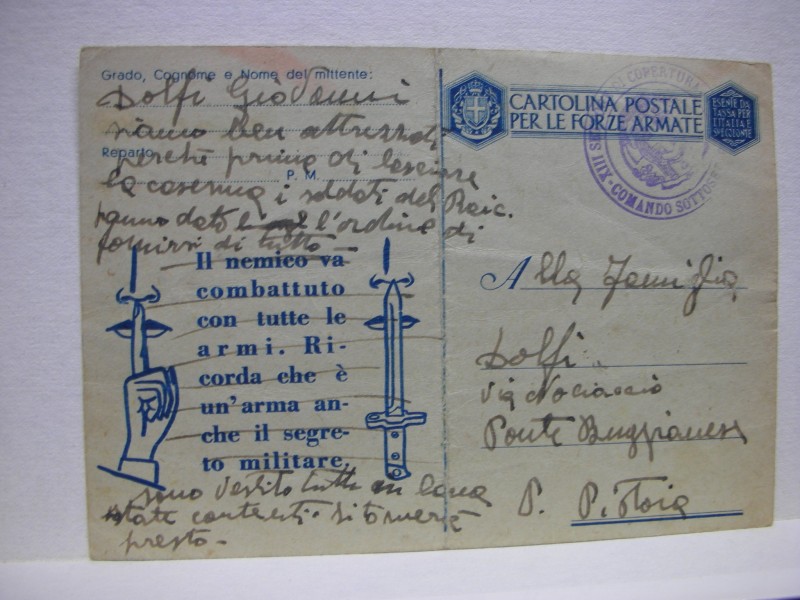 Grado, Cognome e Nome del mittente:
Dolfi Giovanni
siamo ben attrezzati
Reparto
perché prima di lasciare
P. M.
la caserma i soldati del
hanno dato l'ordine di
fornirsi di tutto —
Il nemico va
combattuto
con tutte le
armi. Ri-
corda che è
un'arma an-
che il segre-
to militare.
sono vestito tutto in lana
state contenti. Si tornerà
presto —
CARTOLINA POSTALE
PER LE FORZE ARMATE
ESENTE DA
TASSA PER
L'ITALIA E
COPERTURA
XIII - COMANDO
Alla Famiglia
Dolfi
Via
Ponte Buggianese
P. Pistoia